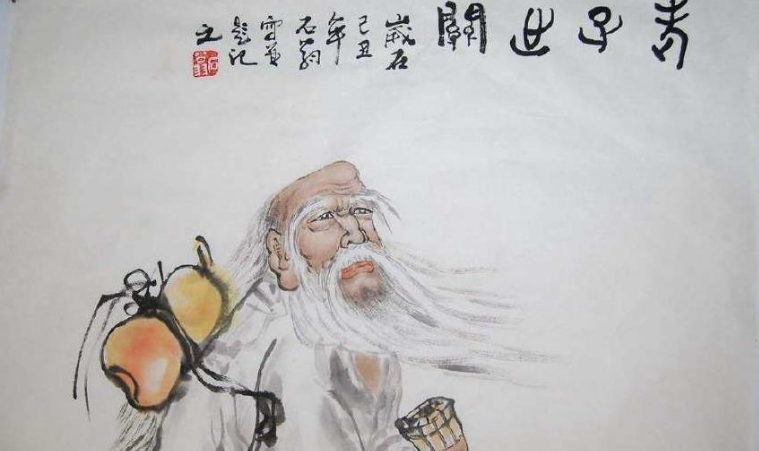 老子出關
歲在
己丑
年
石
雪
题记
之